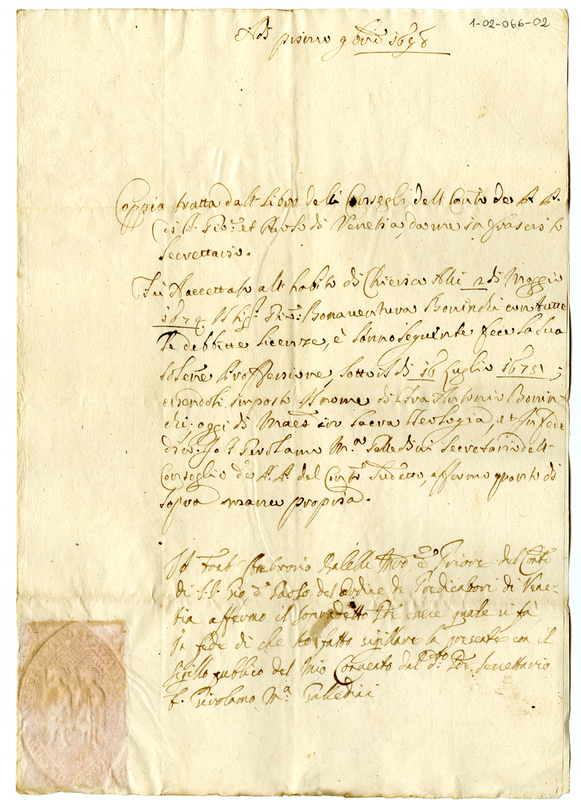 1-02-066-02
Adi primo 9bre 1698
Coppia tratta dall Libro delli Consegli dell Conto de P P
SS. Gio: et Paolo di Venetia, da me infrascrito
Secrettario.
Fu Accettato all habito di Chierico Alli 2 di Maggio
1674 Il Sig. Gio: Bonaventura Bonindri con tutte
le debbitte licenze, è l'anno seguente fece la sua
solene Proffessione, sotto li di 16 Luglio 1675;
essendoli imposto il nome di Fra Antonio Bonin
dri; oggi di Maes in Sacra Teologia, et In fede
di cio Io f. Girolamo Mª Galledini Secretario dell
Conseglio de P. P. del Conto sudetto, affermo quanto di
sopra mano propria.
Io Frat Ambrosio Priore del Conto
di SS. Gio e Paolo del Ordine de Predicatori di Vene-
tia affermo il sopradetto
In fede di che ho fatto sigillare la presente con il
Sigillo publico del Mio Convento dal do Pre Secrettario
f. Girolamo Mª Galledini